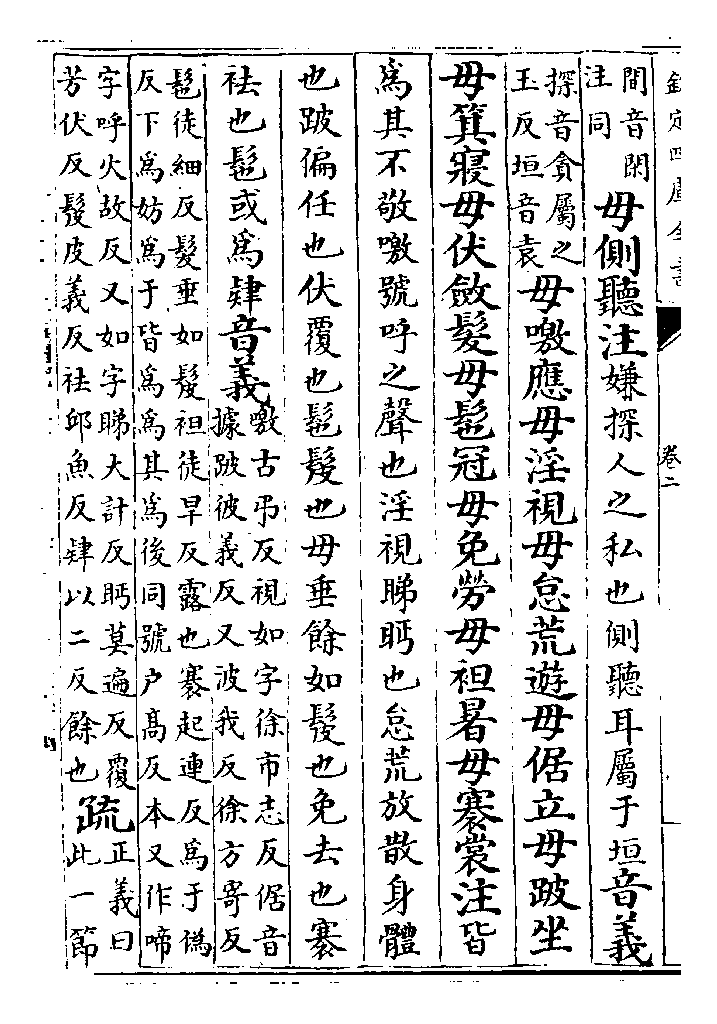 欽定四庫全書 卷二
間音閑
注同
毋側聽注嫌探人之私也側聽耳屬于垣音義
探音貪屬之
玉反垣音袁
毋噭應毋淫視毋怠荒遊毋倨立毋跛坐
毋箕寢毋伏斂髮毋髢冠毋免勞毋袒暑毋褰裳注皆
為其不敬噭號呼之聲也淫視睇眄也怠荒放散身體
也跛偏任也伏覆也髢髲也毋垂餘如髲也免去也褰
袪也髢或為肄音義
噭古弔反視如字徐市志反倨音
據跛彼義反又波我反徐方寄反
髢徒細反髮垂如髲袒徒旱反露也褰起連反為于偽
反下為妨為于皆為為其為後同號户髙反本又作啼
字呼火故反又如字睇大計反眄莫遍反覆
芳伏反髲皮義反袪邱魚反肄以二反餘也
疏
正義曰
此一節